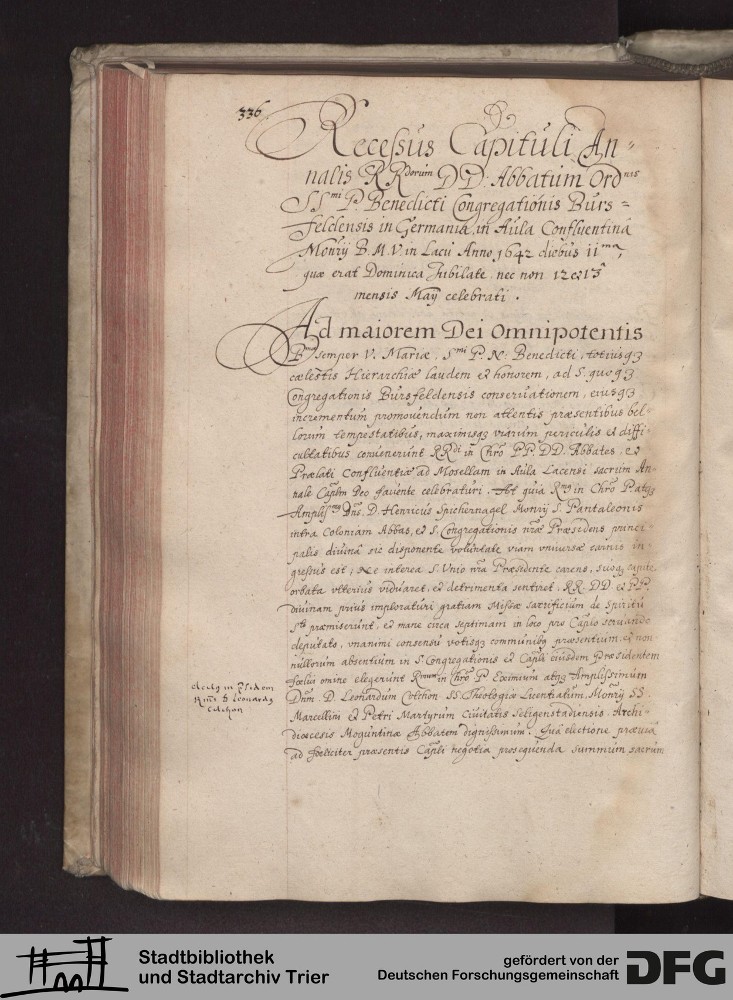 336
Recessus Capituli An-
nalis RR.dorum DD. Abbatum Ord.nis
SS.mi P. Benedicti Congregationis Burs=
feldensis in Germania, in Aula Confluentina
Monrÿ B. M. V. in Lacu Anno 1642 diebus 11.ma,
quæ erat Dominica Jubilate, nec non 12 et 13
mensis Maÿ celebrati.
Ad maiorem Dei Omnipotentis
B.mæ semper V. Mariæ, S.mi P. N. Benedicti, totiusq3
cælestis Hierarchiæ laudem et honorem, ad S. quoq3
Congregationis Bursfeldensis conseruationem, eiusq3
incrementum promouendum non attentis præsentibus bel-
lorum tempestatibus, maximisq3 viarum periculis et diffi-
cultatibus conuenerunt RR.di in Chro PP. DD. Abbates, et
Prælati Confluentiæ ad Mosellam in Aula Lacensi sacrum An-
nale Caplm Deo fauente celebraturi. At quia R.mus in Chro P. atq3
Ampliss.mus Dns. D. Henricus Spichernagel Monrÿ S. Pantaleonis
intra Coloniam Abbas, et S. Congregationis nræ Præsidens princi-
palis diuinâ sic disponente voluntate viam vniuersæ carnis in-
gressus est; Ne interea S. Vnio nra Præsidente carens, suoq3 capite
orbata vlterius viduaret, et detrimenta sentiret, RR. DD. et PP.
diuinam prius imploraturi gratiam Missæ sacrificium de Spiritu
S.to præmiserunt, et mane circa septimam in loco pro Caplo seruando
deputato, vnanimi consensu votisq3 communibq præsentium, et non-
nullorum absentium in S. Congregationis et Capli eiusdem Præsidentem
fœlici omine elegerunt R.mum in Chro P. Eximium atq3 Amplissimum
Dnm. D. Leonardum Colchon SS. Theologiæ Licentiatum, Monrÿ SS.
Marcellini et Petri Martyrum Ciuitatis Seligenstadiensis Archi-
diœcesis Moguntinæ Abbatem dignissimum. Quâ electione præuiâ
ad fœliciter præsentis Capli negotia prosequenda summum sacrum
electq in Psidem
R.mus D. Leonardq
Colchon
Stadtbibliothek
und Stadtarchiv Trier
gefördert von der
Deutschen Forschungsgemeinschaft
DFG